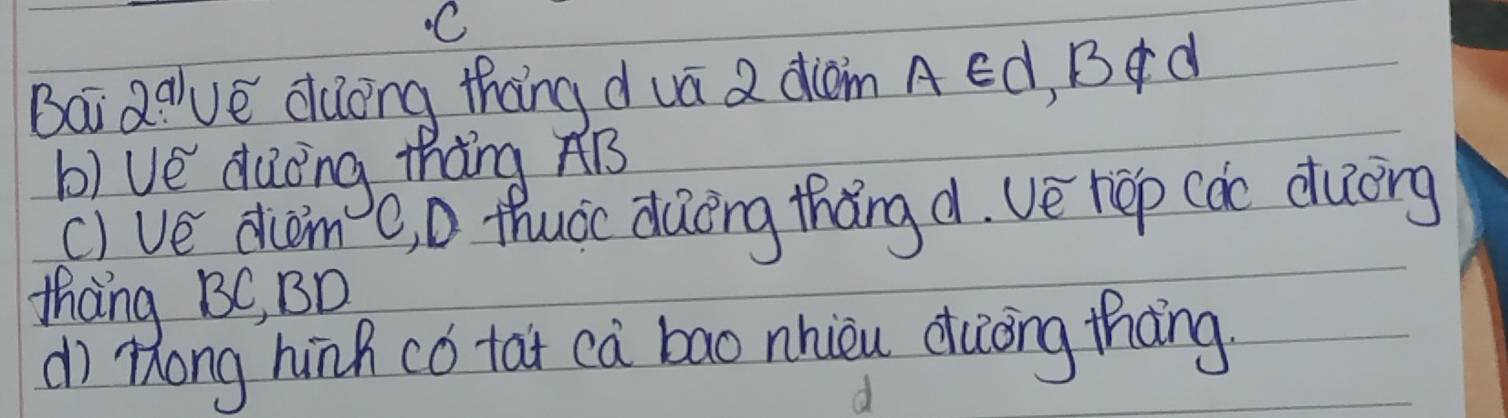 .C
Bài 2: a) Vẽ đường thẳng d và 2 điểm A ∈ d, B ∉ d
b) Vẽ đường thẳng AB
c) Vẽ điểm C, D thuộc đường thẳng d. Vẽ tiếp các đường
thẳng BC, BD
d) Trong hình có tất cả bao nhiêu đường thẳng.
d